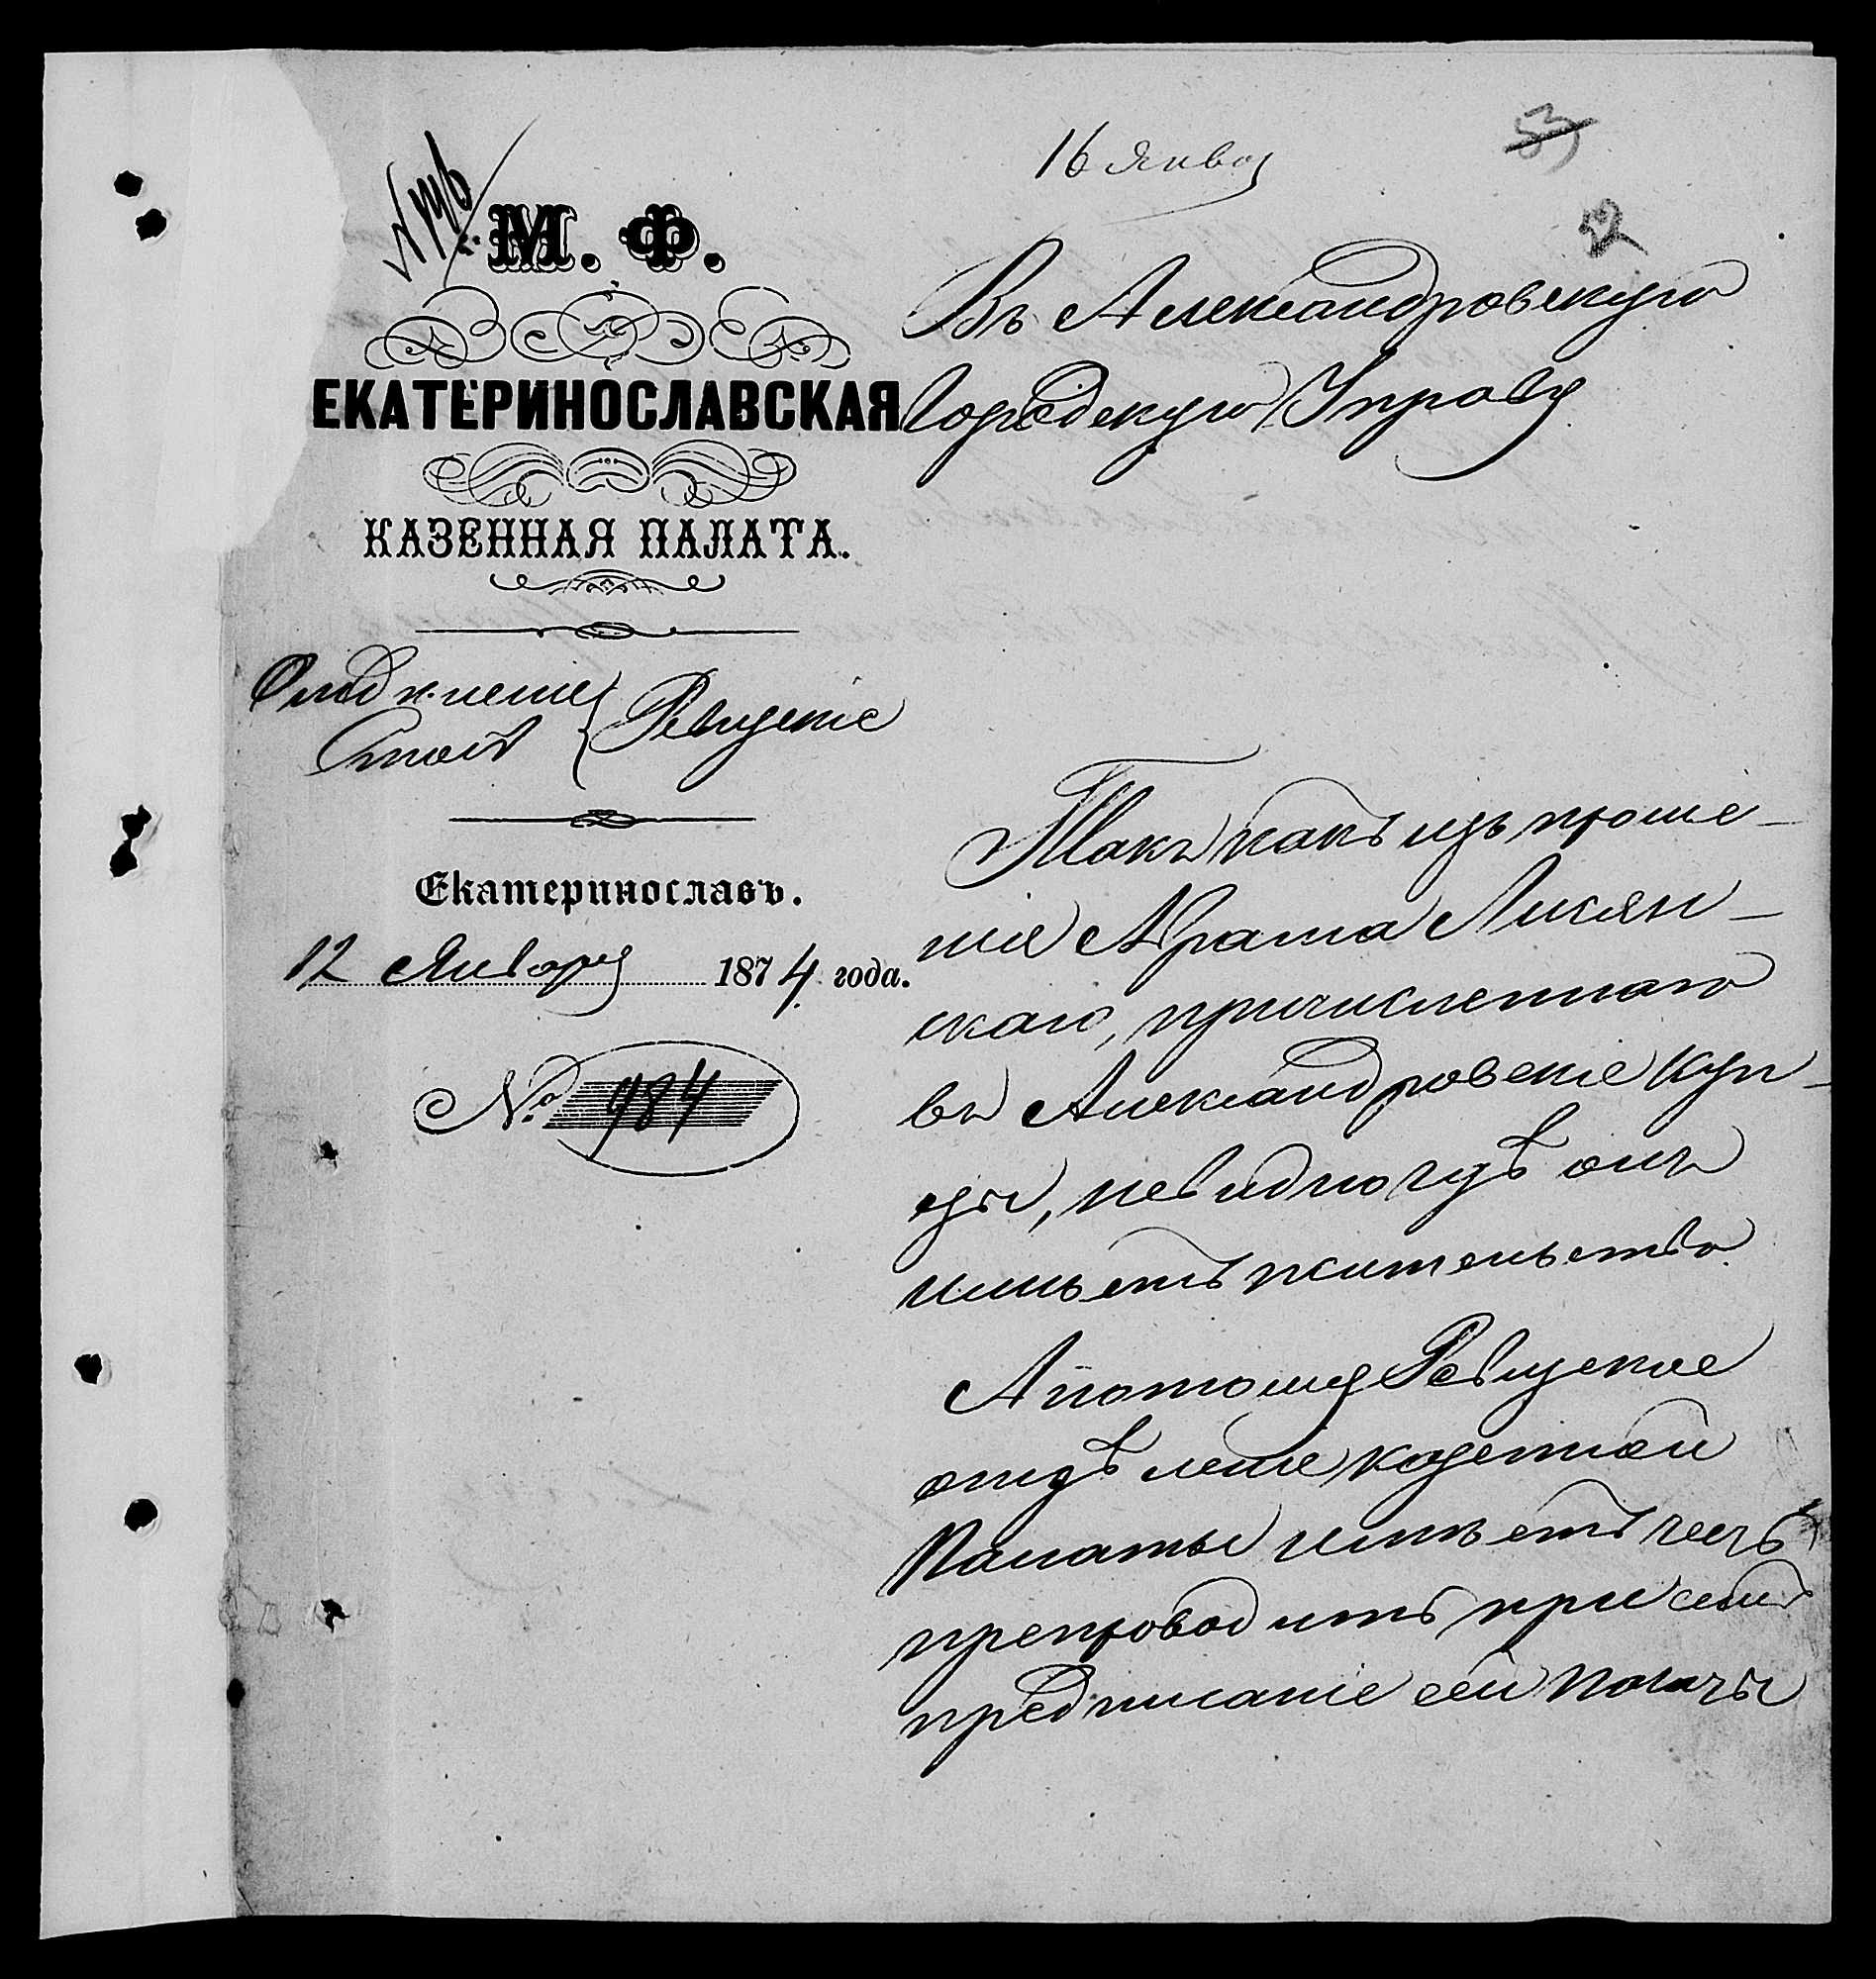 16 Январ
53
2
М. Ф.
ЕКАТЕРИНОСЛАВСКАЯ
КАЗЕННАЯ ПАЛАТА.
Отдѣленіе Ревизское
Столъ
Екатеринославъ.
12 Января 1874 года.
№ 984
Въ Александровскую
Городскую Управу
Такъ какъ изъ проше-
нія Абрама Лиsян-
скаго, причисленнаго
въ Александровскіе куп-
цы, невидно гдѣ онъ
имѣетъ жительство.
А потому Ревизское
отдѣленіе казенной
Палаты имѣетъ честь
препроводить при семъ
предписаніе сей Палаты